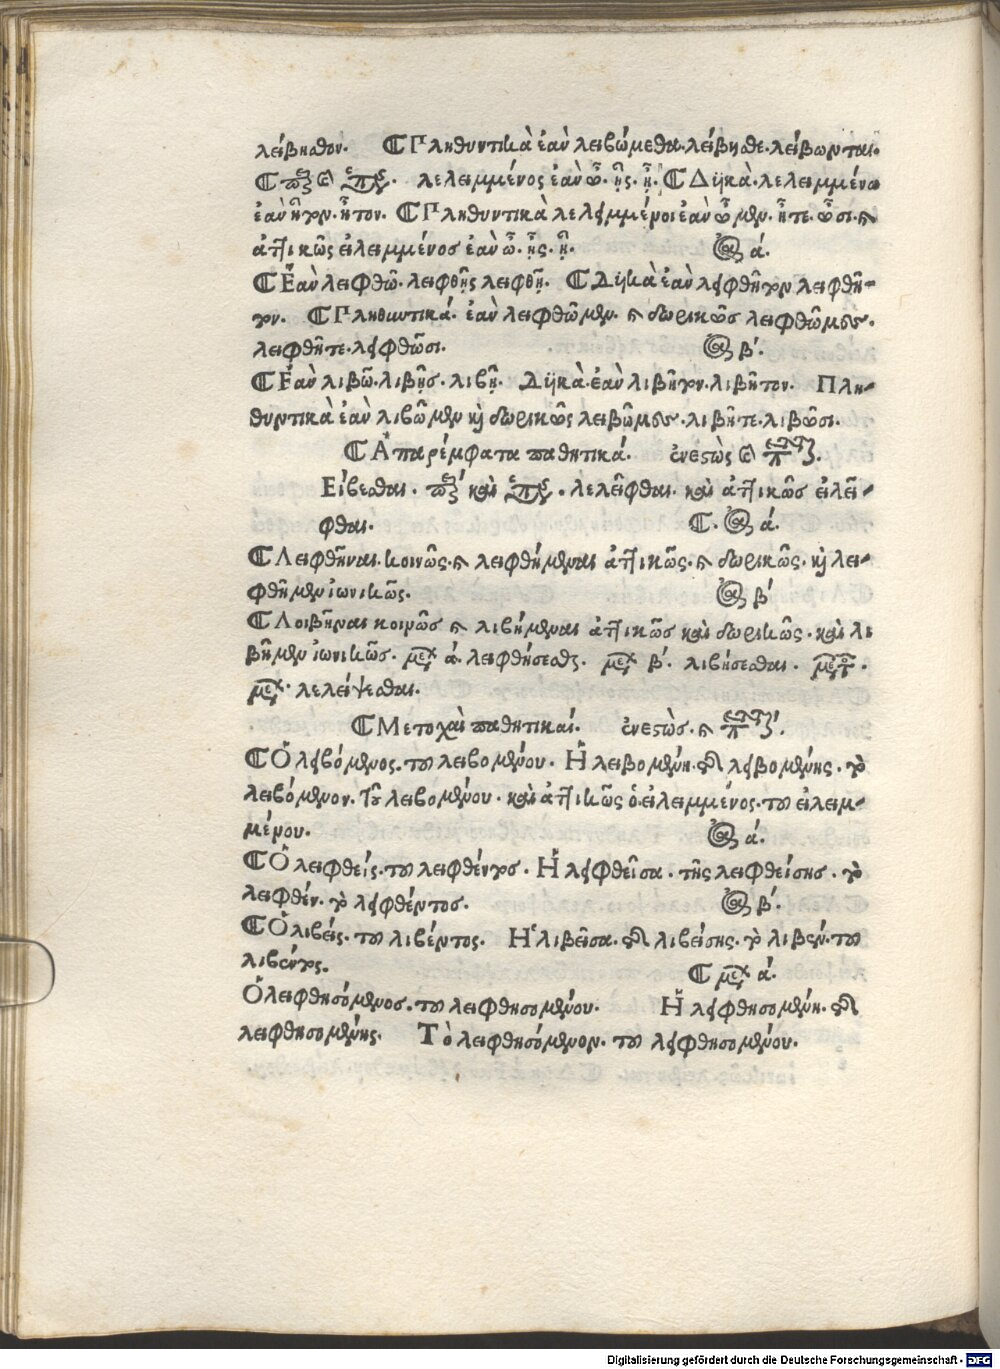 λείβησθον. Πληθυντικὰ ἐὰν λειβώμεθα. λείβησθε. λείβωνται.
λελειμμένος ἐὰν ὦ. ᾖς. ᾖ. Δϋικὰ. λελειμμένω
ἐὰν ἦτον. ἦτον. Πληθυντικὰ λελειμμένοι ἐὰν ὦμεν. ἦτε. ὦσι. καὶ
ἀττικῶς εἰλειμμένοσ ἐὰν ὦ. ᾖς. ᾖ. ά.
Ἐὰν λειφθῶ. λειφθῇς λειφθῇ. Δϋικὰ ἐὰν λειφθῆτον λειφθῆ-
τον. Πληθυντικά. ἐὰν λειφθῶμεν. καὶ δωρικῶσ λειφθῶμες.
λειφθῆτε. λειφθῶσι. β΄.
Ἐὰν λιβῶ. λιβῇσ. λιβῇ. Δϋικὰ. ἐὰν λιβῆτον. λιβῆτον. Πλη-
θυντικὰ ἐὰν λιβῶμεν καὶ δωρικῶς λειβῶμες. λιβῆτε. λιβῶσι.
Ἀπαρέμφατα παθητικά. ἐνεστὼς
Είβεσθαι. καὶ λελεῖφθαι. καὶ ἀττικῶσ εἰλεῖ-
φθαι. ά.
Λειφθῆναι. κοινῶς. καὶ λειφθήμεναι ἀττικῶς. καὶ δωρικῶς. καὶ λει-
φθῆμεν ἰωνικῶς. β΄
Λοιβῆναι κοινῶσ καὶ λιβήμεναι ἀττικῶσ καὶ δωρικῶς. καὶ λι
βῆμεν ἰωνικῶσ. ά. λειφθήσεσθαι. β΄. λιβήσεσθαι.
λελείψεσθαι.
Μετοχαὶ παθητικαί. ἐνεστὼσ. καὶ
Ὁ λειβόμενος. τοῦ λειβομένου. Ἡ λειβομένη. τῆς λειβομένης. τὸ
λειβόμενον. τοῦ λειβομένου. καὶ ἀττικῶς ὁ εἰλειμμένος. τοῦ εἰλειμ-
μένου. ά.
Ὁ λειφθείς. τοῦ λειφθέντοσ. Ἡ λειφθεῖσα. τῆς λειφθείσης. τὸ
λειφθέν. τὸ λειφθέντοσ. β΄.
Ὁ λιβείς. τοῦ λιβέντος. Ἡ λιβεῖσα. τῆς λιβείσης. τὸ λιβέν. τοῦ
λιβέντος. ά.
Ὁ λειφθησόμενοσ. τοῦ λειφθησομένου. Ἡ λειφθησομένη. τῆς
λειφθησομένης. Τὸ λειφθησόμενον. τοῦ λειφθησομένου.
Digitalisierung gefördert durch die Deutsche Forschungsgemeinschaft - DFG